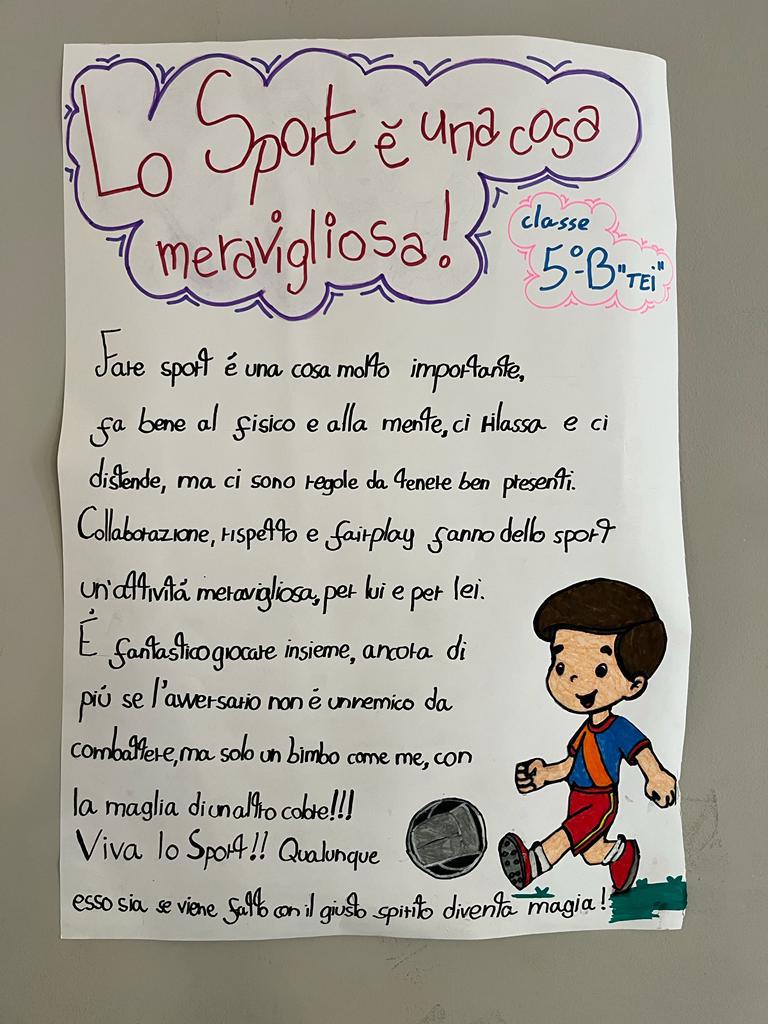 Lo Sport è una cosa
meravigliosa!
classe
5°-B "TEI"
Fare sport é una cosa molto importante,
fa bene al fisico e alla mente, ci rilassa e ci
distende, ma ci sono regole da tenere ben presenti.
Collaborazione, rispetto e fairplay fanno dello sport
un'attivitá meravigliosa, per lui e per lei.
É fantastico giocare insieme, ancora di
piú se l'avversario non é un nemico da
combattere, ma solo un bimbo come me, con
la maglia di un altro colore!!!
Viva lo Sport!! Qualunque
esso sia se viene fatto con il giusto spirito diventa magia!